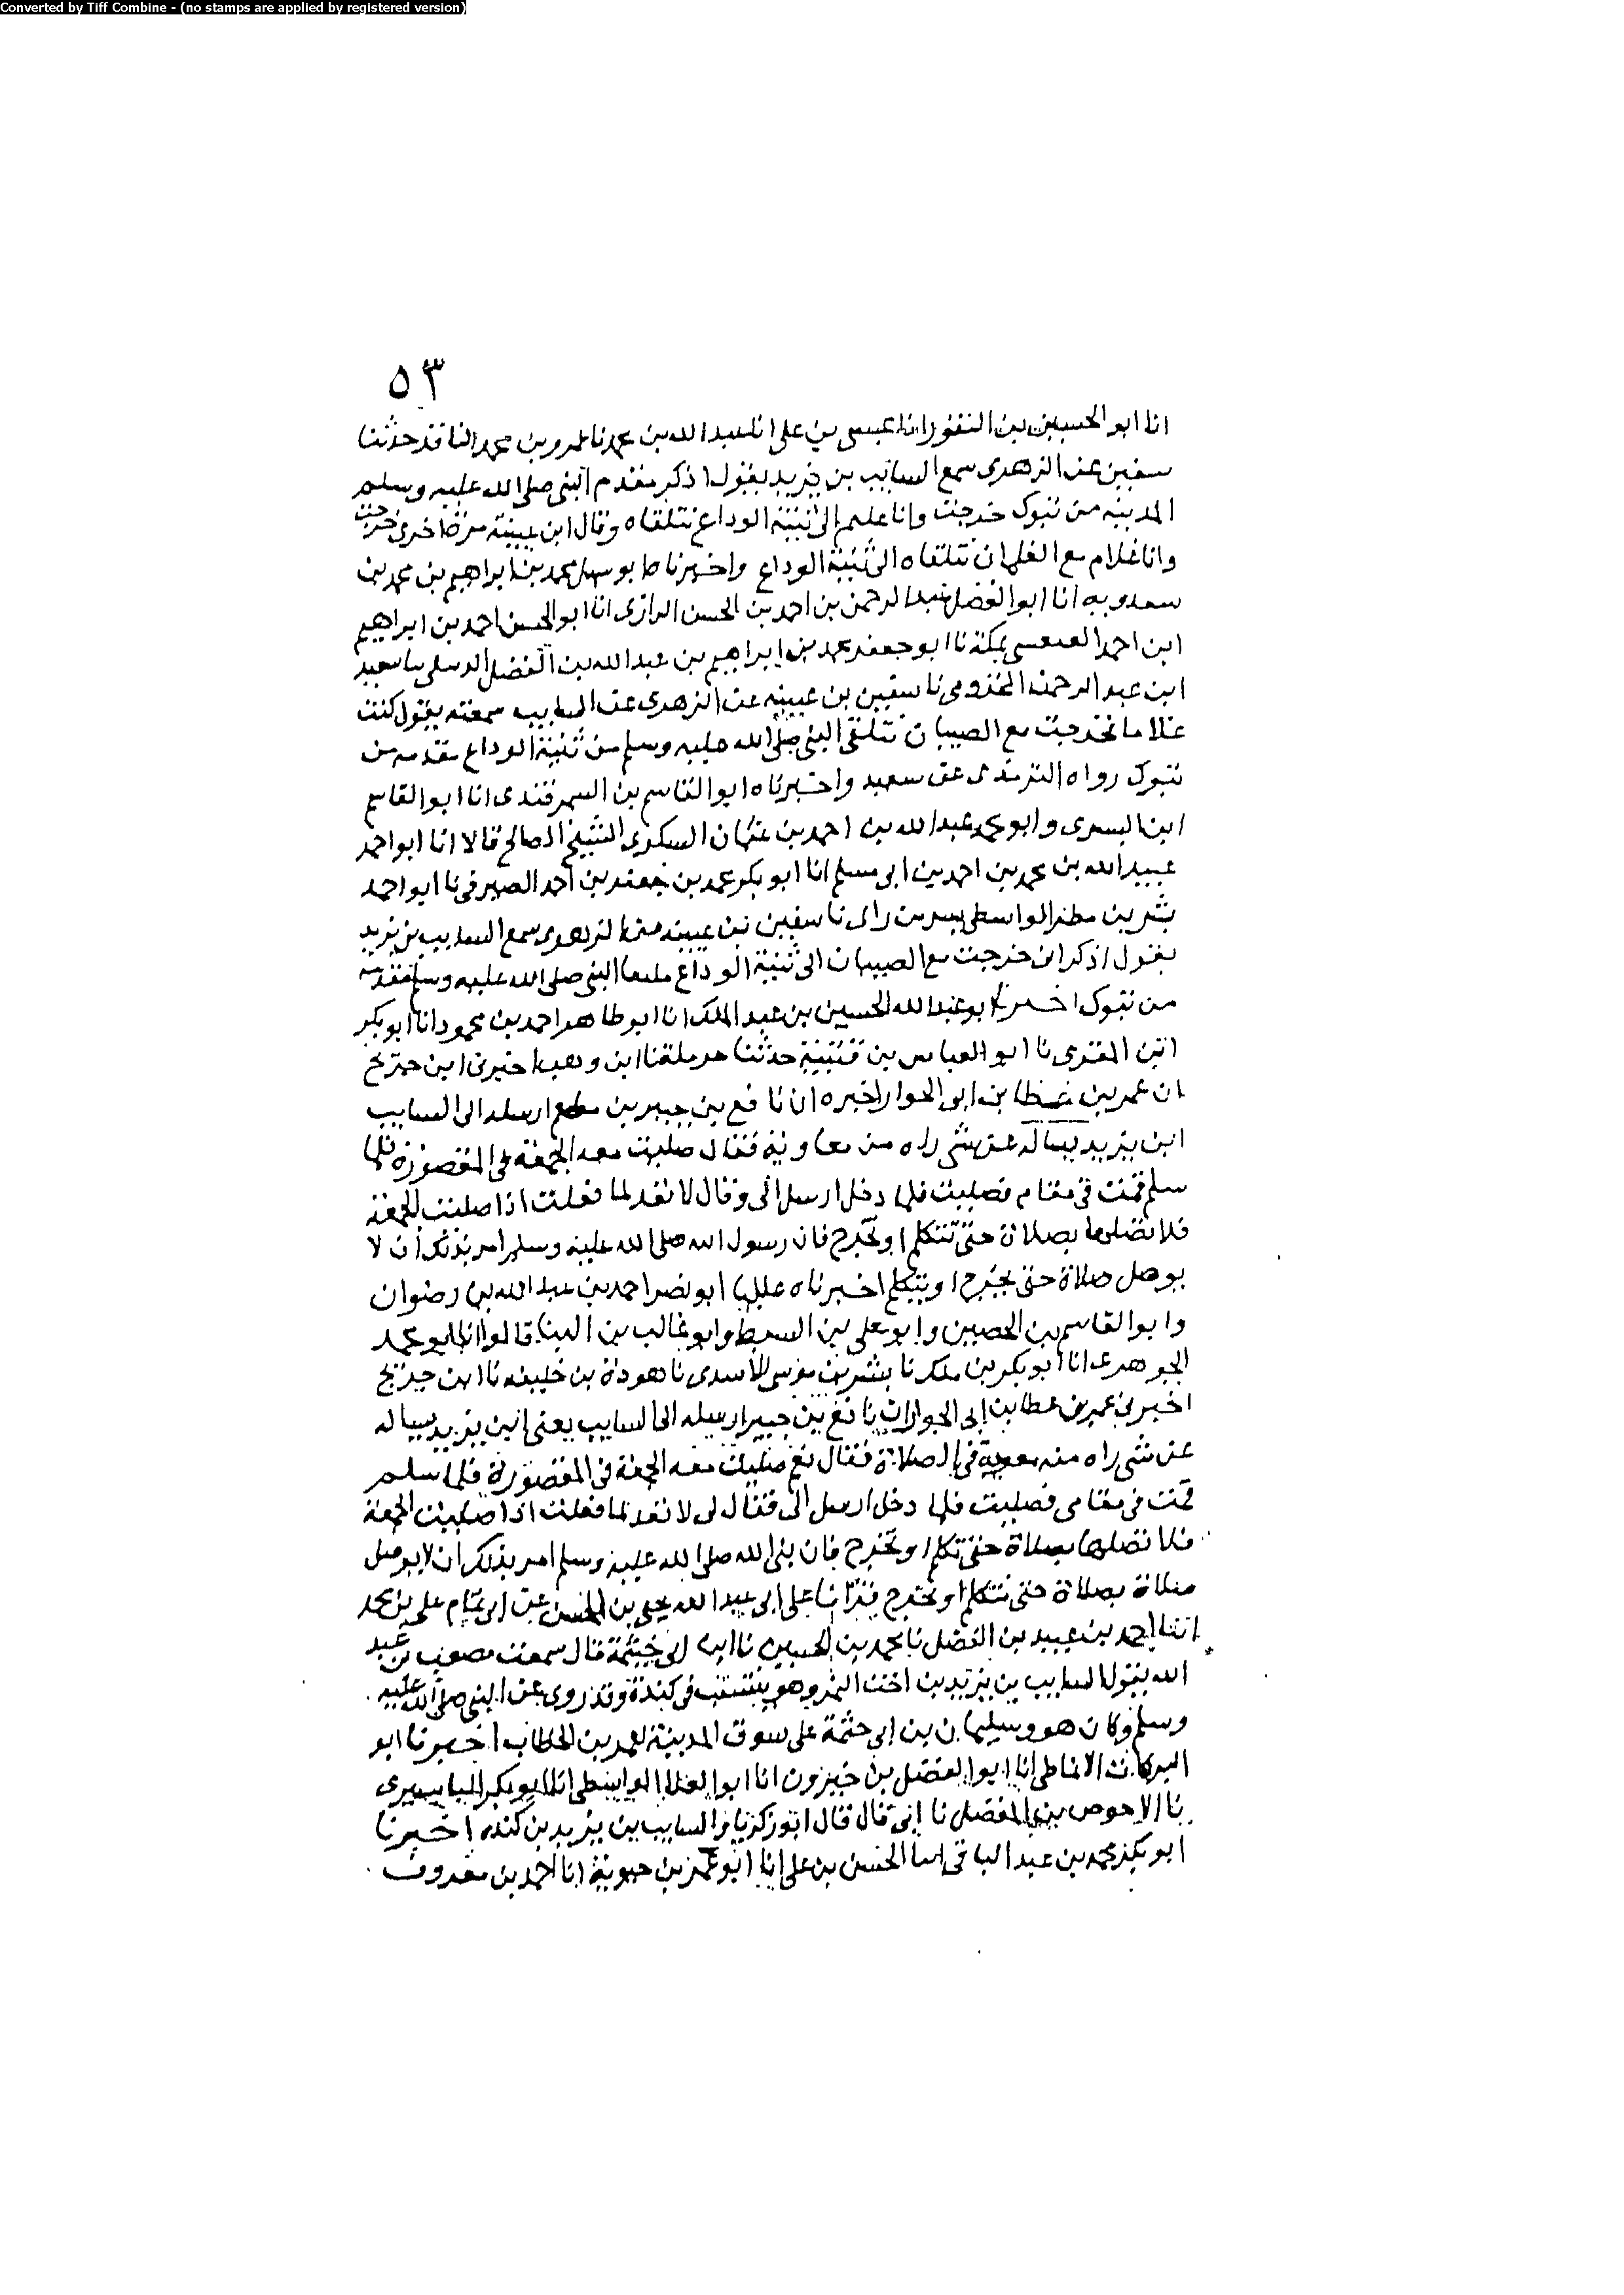 Converted by Tiff Combine - (no stamps are applied by registered version)
٥٣
انا ابو الحسين بن النقور انا عيسى بن على انا عبد الله بن محمد نا عمرو بن محمد الناقد حدثنا
سفين عن الزهرى سمع السايب بن يزيد يقول اذكر مقدم النبى صلى الله عليه وسلم
المدينه من تبوك خرجت وانا غلام الى ثنية الوداع نتلقاه وقال ابن عيينة مرة اخرى خرجت
وانا غلام مع الغلمان نتلقاه الى ثنية الوداع واخبرناه ابو سهل محمد بن ابراهيم بن محمد بن
سعدويه انا ابو الفضل عبد الرحمن بن احمد بن الحسن الرازى انا ابو الحسن احمد بن ابراهيم
ابن احمد العبقسى بمكة نا ابو جعفر محمد بن ابراهيم بن عبد الله بن الفضل الديبلى نا سعيد
ابن عبد الرحمن المخزومى نا سفين بن عيينه عن الزهرى عن السايب سمعته يقول كنت
غلاما فخرجت مع الصبيان نتلقى النبى صلى الله عليه وسلم من ثنية الوداع مقدمه من
تبوك رواه الترمذى عن سعيد واخبرناه ابو القاسم بن السمرقندى انا ابو القاسم
ابن البسرى وابو محمد عبد الله بن احمد بن عثمان السكرى الشيخ الصالح قالا انا ابو احمد
عبيد الله بن محمد بن احمد بن ابى مسلم انا ابو بكر محمد بن جعفر بن احمد الصيرفى نا ابو احمد
بشر بن مطر الواسطى بسر من راى نا سفين بن عيينه عن الزهرى سمع السايب بن يزيد
يقول اذكر ان خرجت مع الصبيان الى ثنية الوداع النبى صلى الله عليه وسلم مقدمه
من تبوك اخبرنا ابو عبد الله الحسين بن عبد الملك انا ابو طاهر احمد بن محمود انا ابو بكر
ابن المقرى نا ابو العباس بن قتيبة حدثنا حرملة نا ابن وهب اخبرنى ابن جريج
ان عمر بن عطا بن ابى الخوار اخبره ان نافع بن جبير بن مطعم ارسله الى السايب
ابن يزيد يساله عن شى راه من معاوية فقال صليت معه الجمعة فى المقصورة فلما
سلم قمت فى مقام فصليت فلما دخل ارسل الى وقال لا تعد لما فعلت اذا صليت الجمعة
فلا تصلها بصلاة حتى تتكلم او تخرج فان رسول الله صلى الله عليه وسلم امر بذلك ان لا
يوصل صلاة حتى يخرج او يتكلم اخبرناه عليا ابو نصر احمد بن عبد الله بن رضوان
وابو القاسم بن الحصين وابو على بن السبط وابو غالب بن البنا قالوا انا ابو محمد
الجوهرى انا ابو بكر بن ملك نا بشر بن موسى الاسدى نا هوذة بن خليفه نا ابن جريج
اخبرنى عمر بن عطا بن ابى الخوار ان نافع بن جبير ارسله الى السايب يعنى ابن يزيد يساله
عن شى راه منه معوية فى الصلاة فقال نعم صليت معه الجمعة فى المقصورة فلما سلم
قمت فى مقامى فصليت فلما دخل ارسل الى فقال لى لا تعد لما فعلت اذا صليت الجمعة
فلا تصلها بصلاة حتى تكلم او تخرج فان نبى الله صلى الله عليه وسلم امر بذلك ان لا يوصل
صلاة بصلاة حتى نتكلم او نخرج قرانا على ابى عبد الله يحيى بن الحسن عن ابى تمام على بن محمد
انا احمد بن عبيد بن الفضل نا محمد بن الحسين نا ابن ابى خيثمة قال سمعت مصعب بن عبد
الله يقول السايب بن يزيد بن اخت النمر وهو ينتسب فى كندة وقد روى عن النبى صلى الله عليه
وسلم وكان هو وسليمان بن ابى حثمة على سوق المدينة لعمر بن الخطاب اخبرنا ابو
البركات الانماطى انا ابو الفضل بن خيرون انا ابو العلا الواسطى انا ابو بكر البابسيرى
نا الاحوص بن المفضل نا ابى قال قال ابو زكريا والسايب بن يزيد بن كنده اخبرنا
ابو بكر محمد بن عبد الباقى انا الحسن بن على انا ابو عمر بن حيوية انا احمد بن معروف